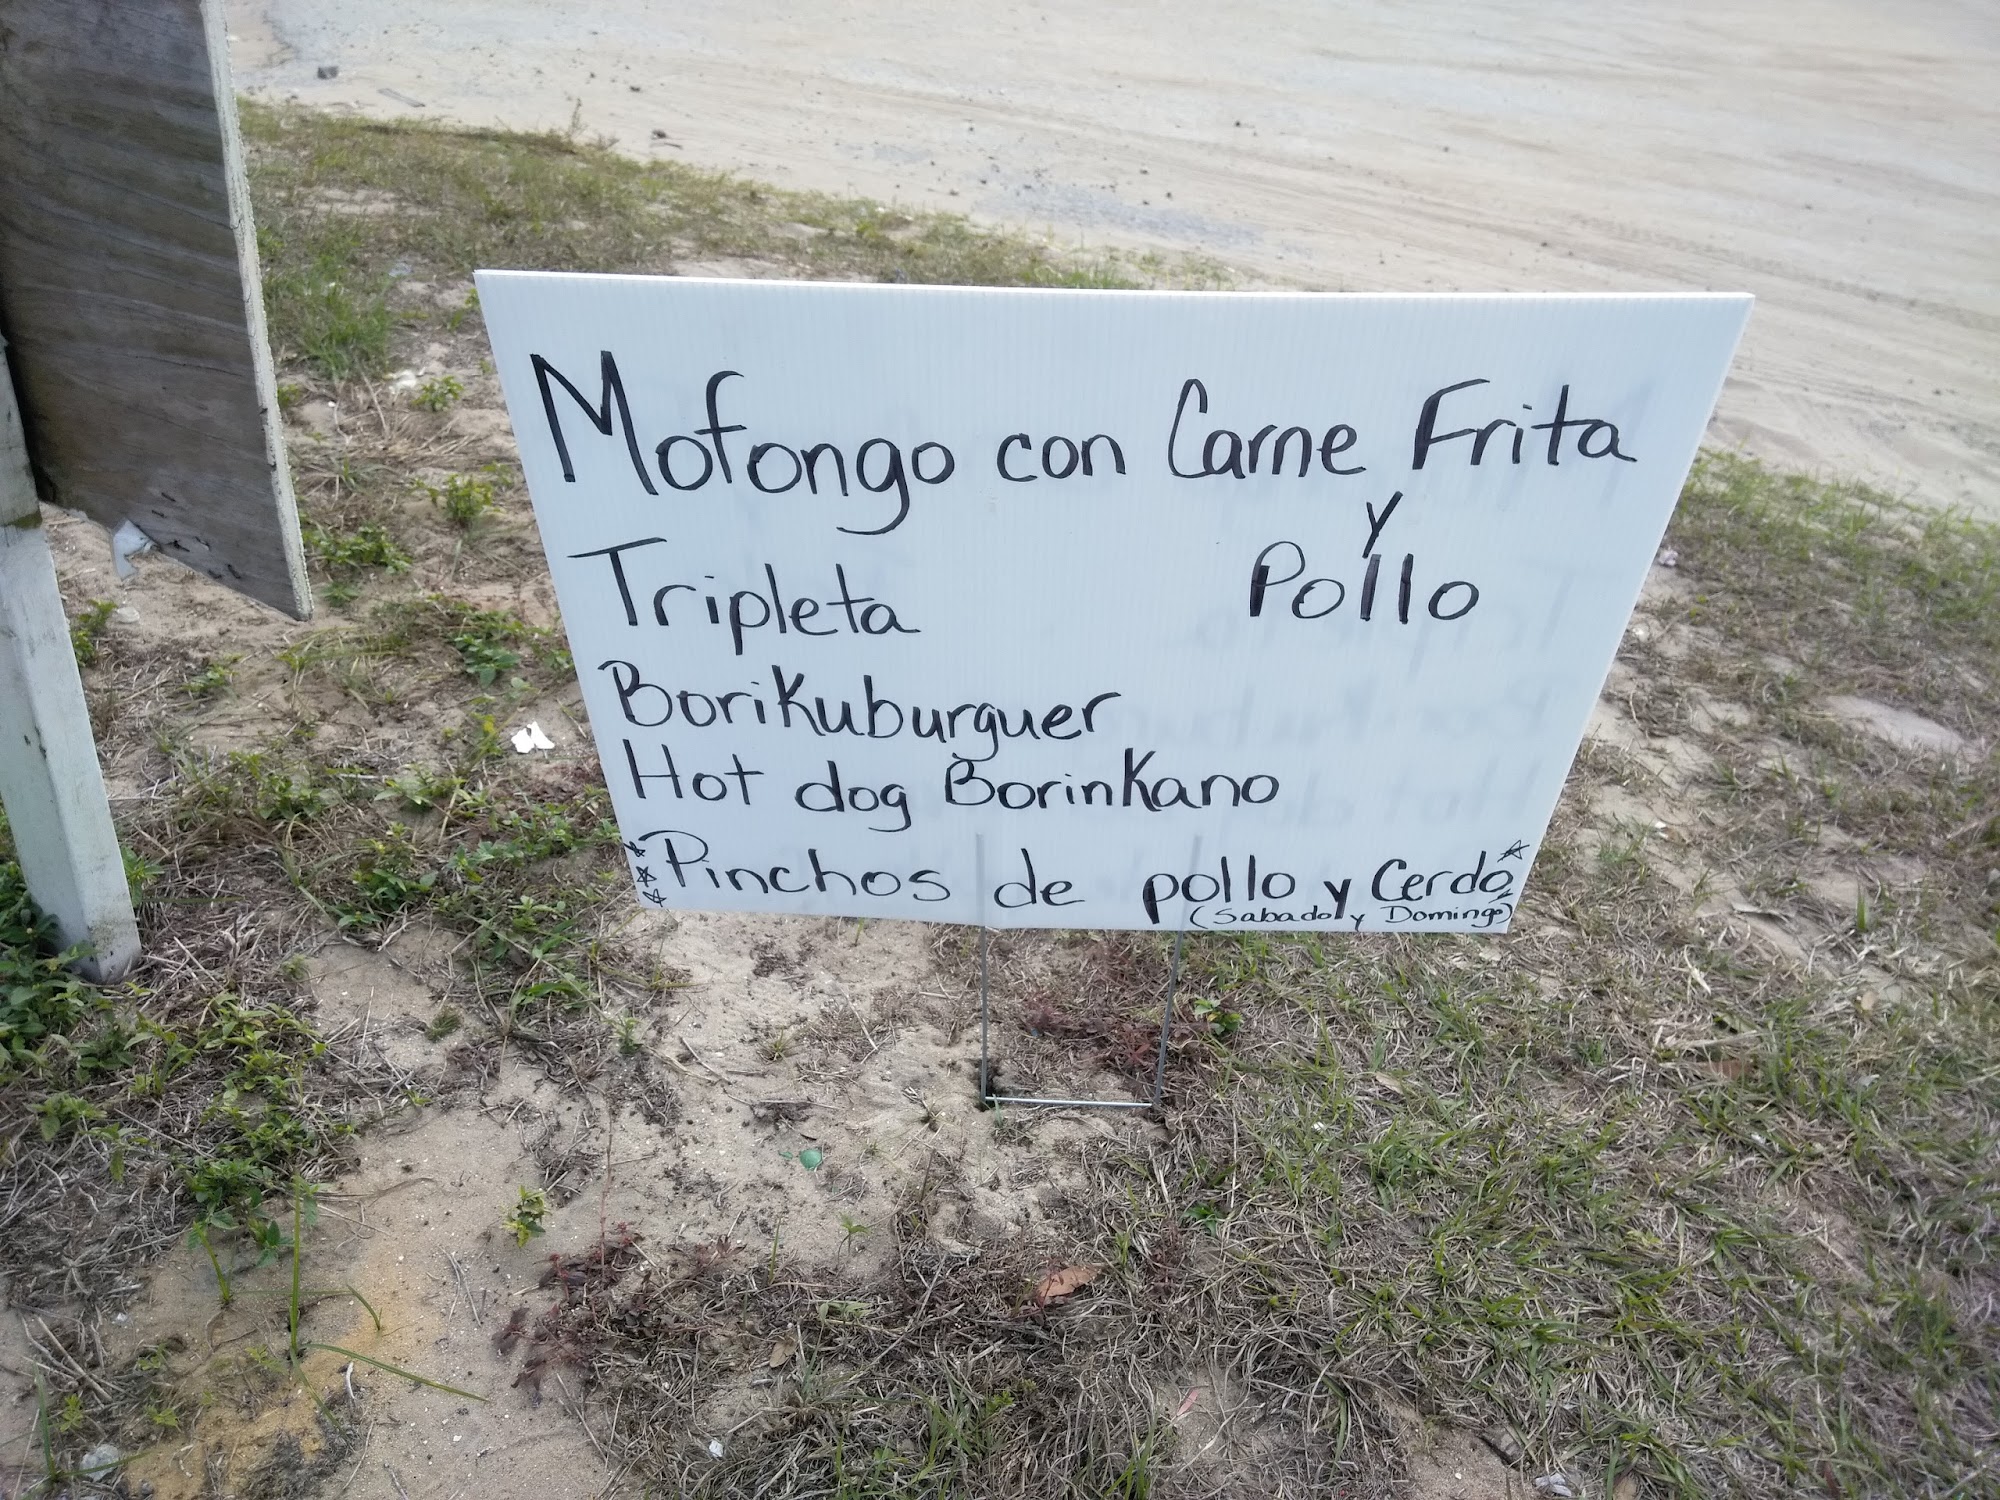 Mofongo con Carne Frita
y
Tripleta Pollo
BoriKuburguer
Hot dog BorinKano
Pinchos de pollo y Cerdo
(Sabado y Domingo)